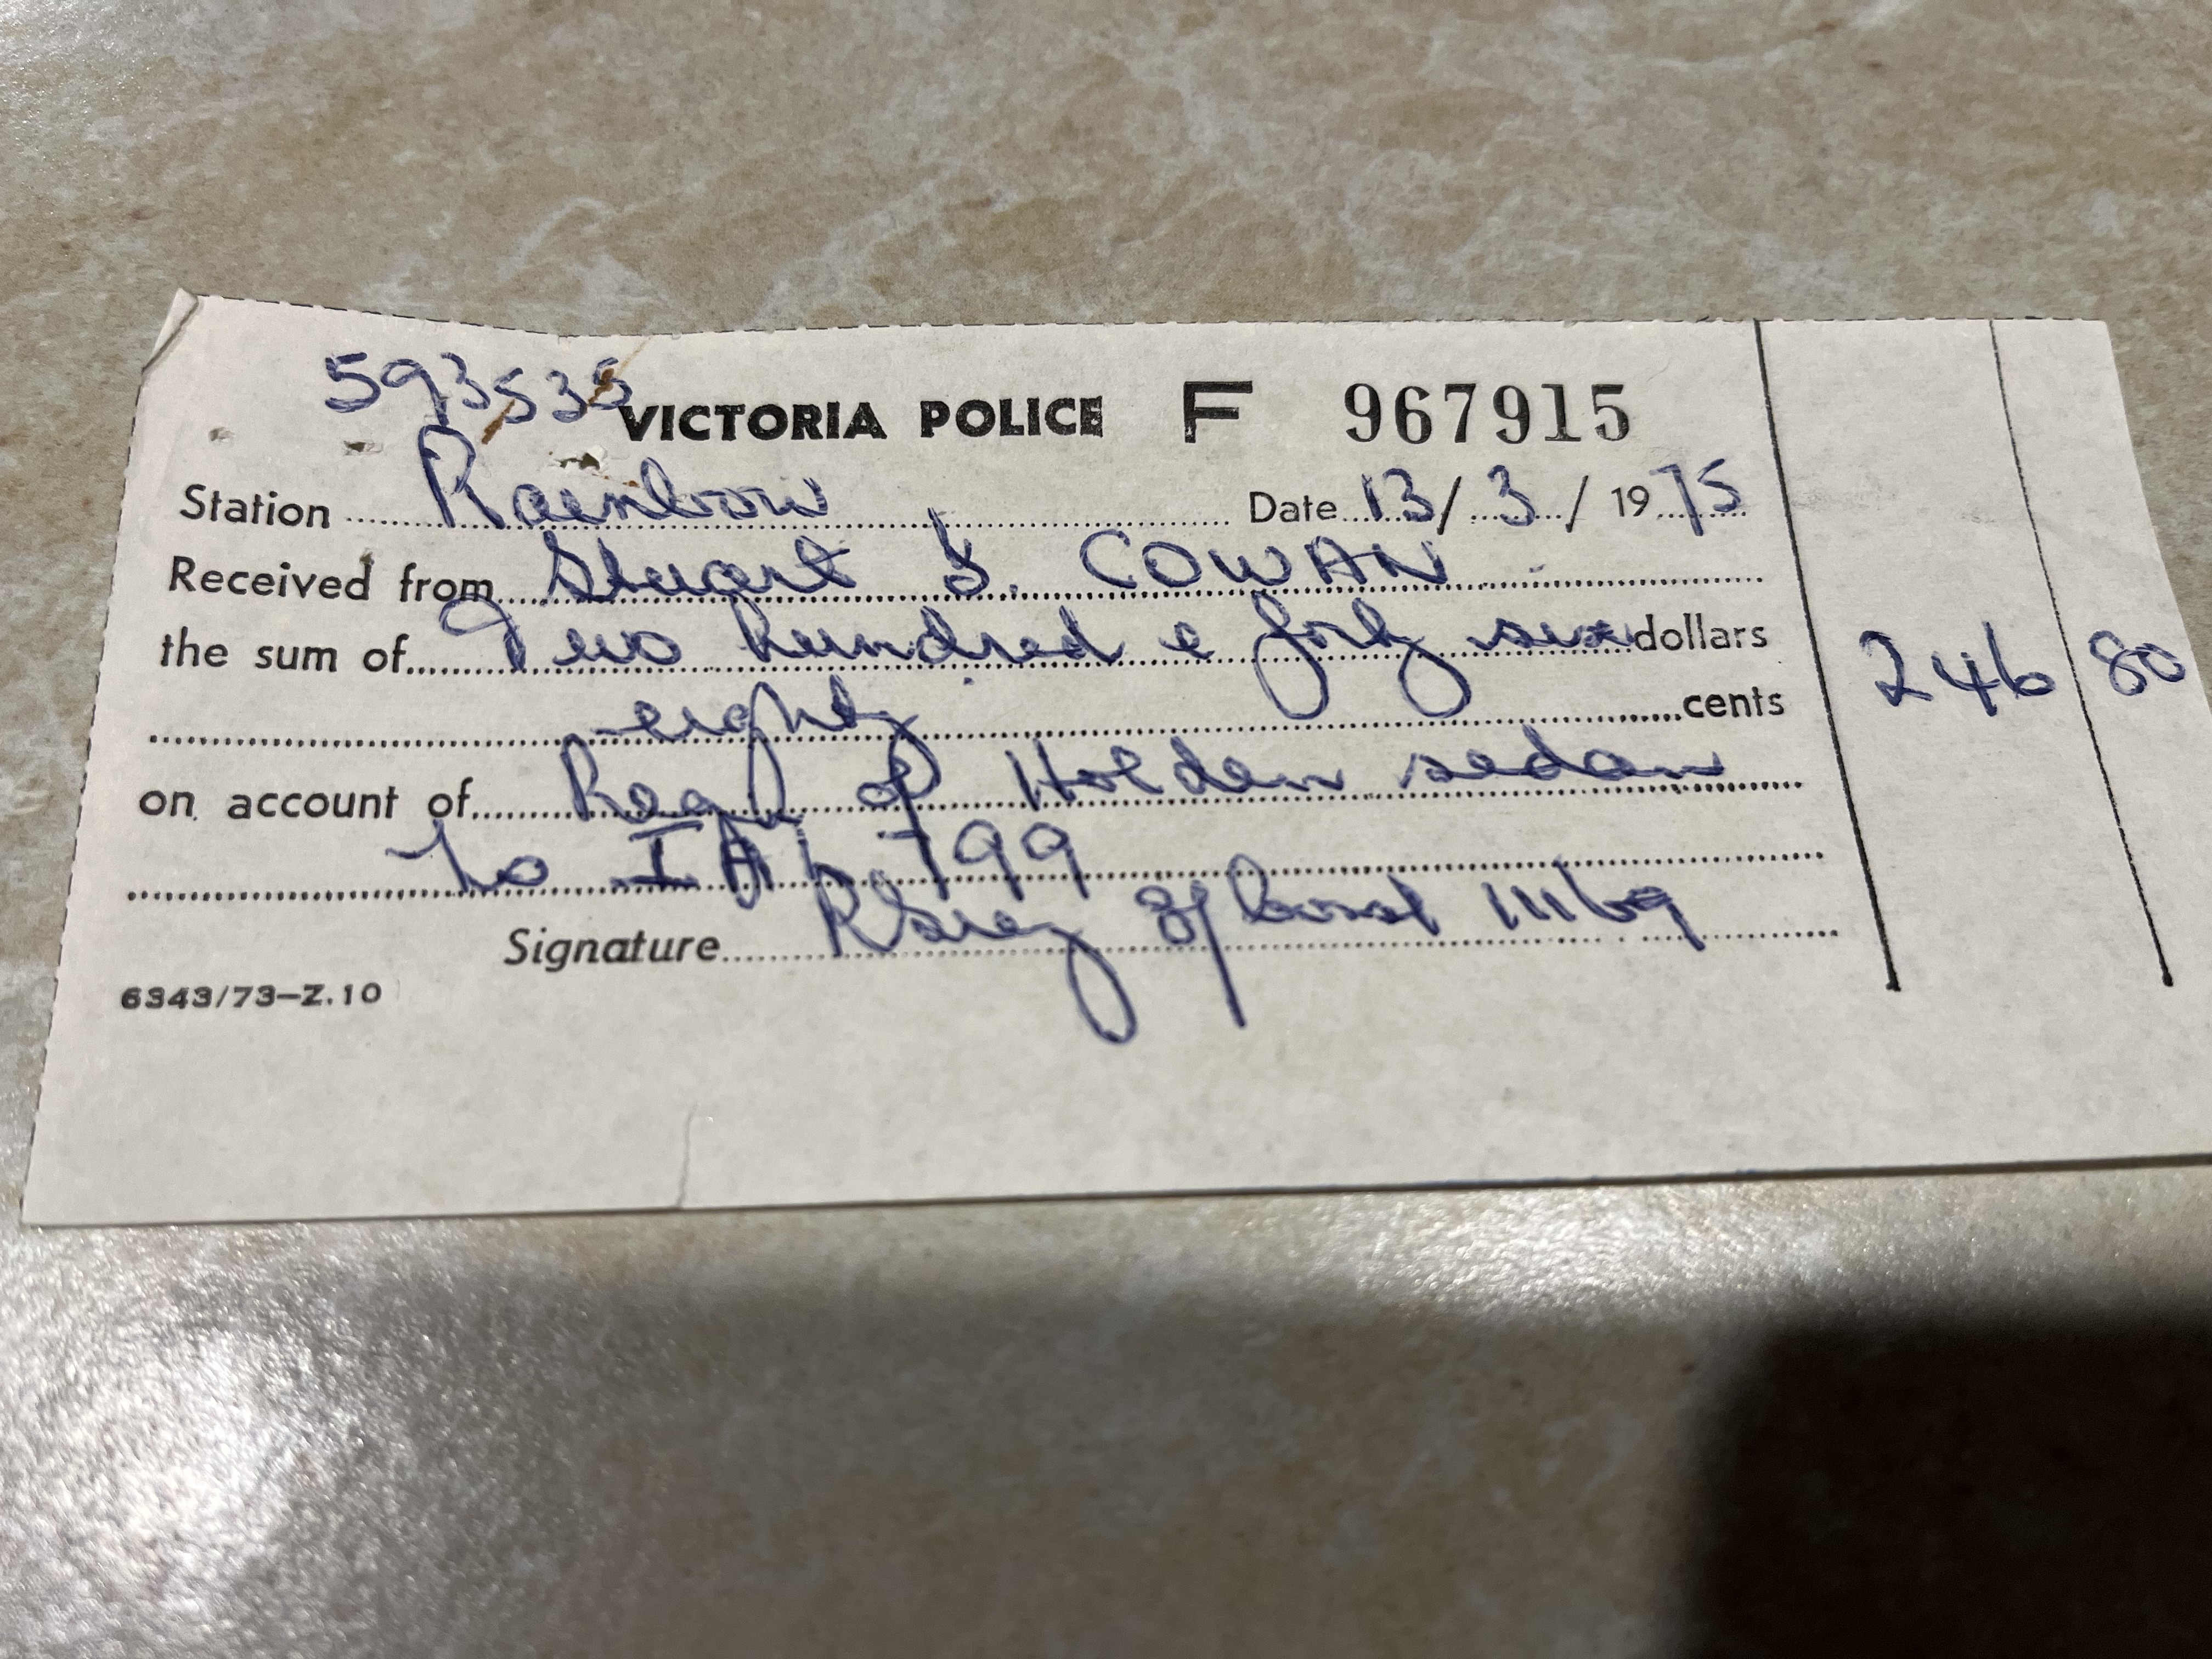 593535
VICTORIA POLICE F 967915
Station Rainbow Date 13/3/1975
Received from Stuart COWAN
the sum of Two hundred & forty six dollars
eighty cents
on account of Reg of Holden sedan
to 799
Signature 11169
6343/73-Z.10
246 80